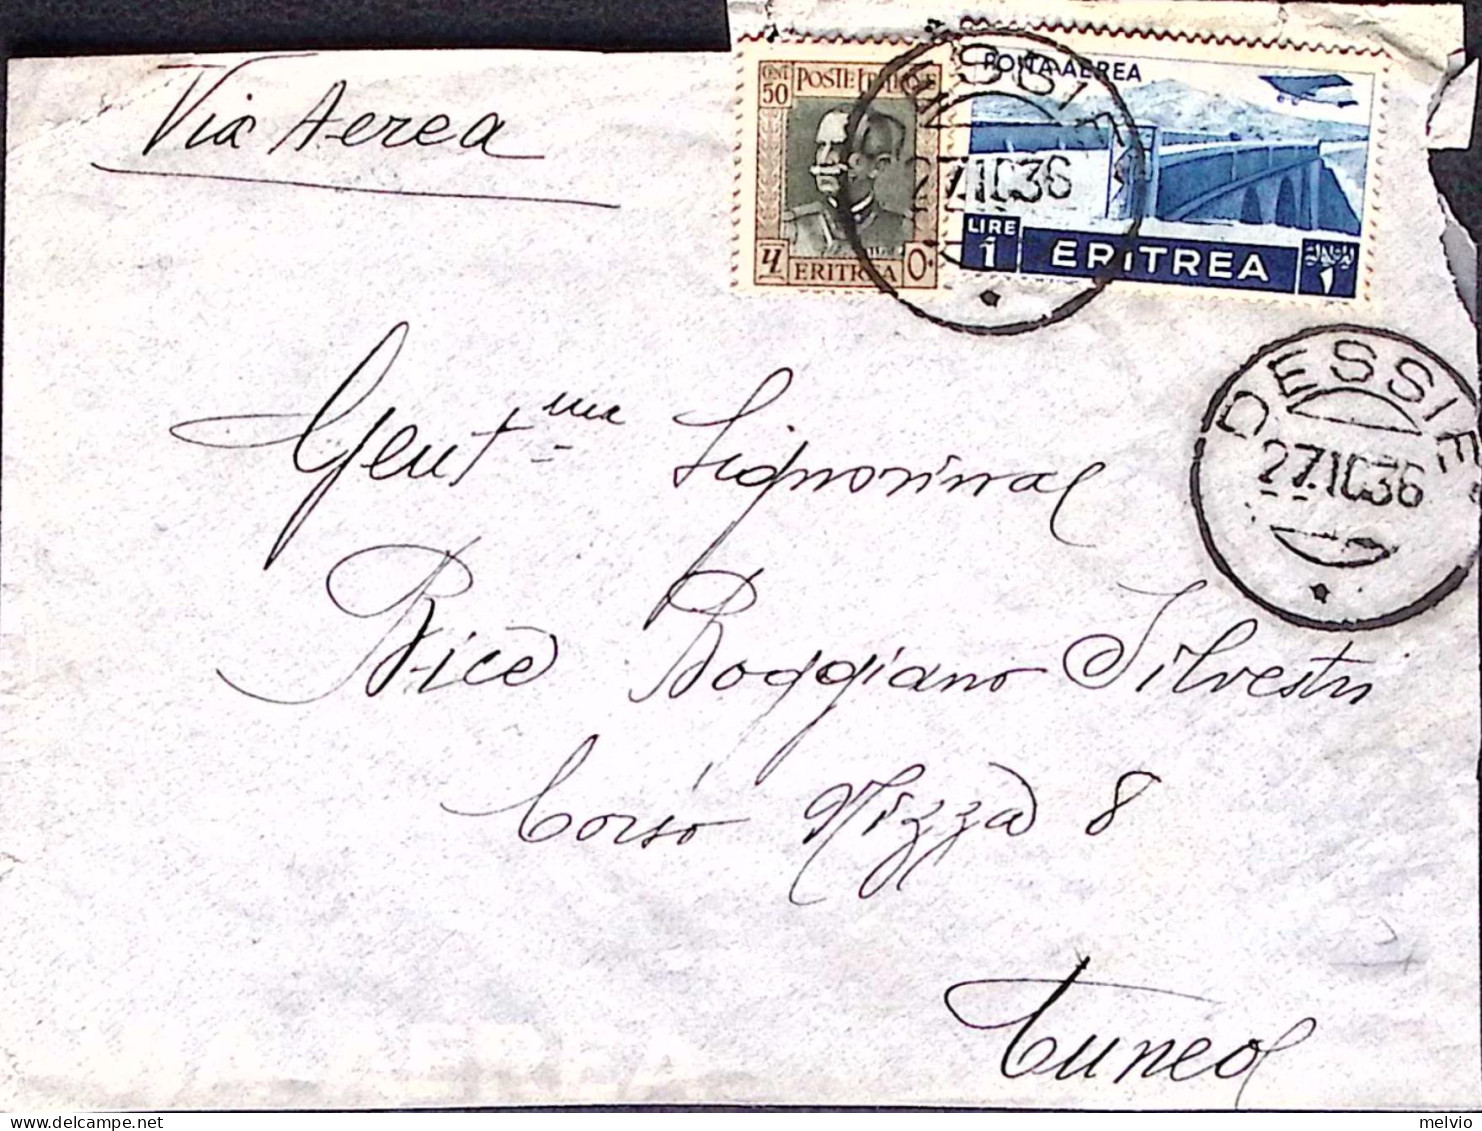 Via Aerea
CENT 50 POSTE ITALIANE
ERITREA
POSTA AEREA
LIRE 1 ERITREA
27.10.36
DESSIE
27.10.36
Gent.ma Signorina
Bice Boggiano Silvestri
Corso Nizza 8
Cuneo
melvio